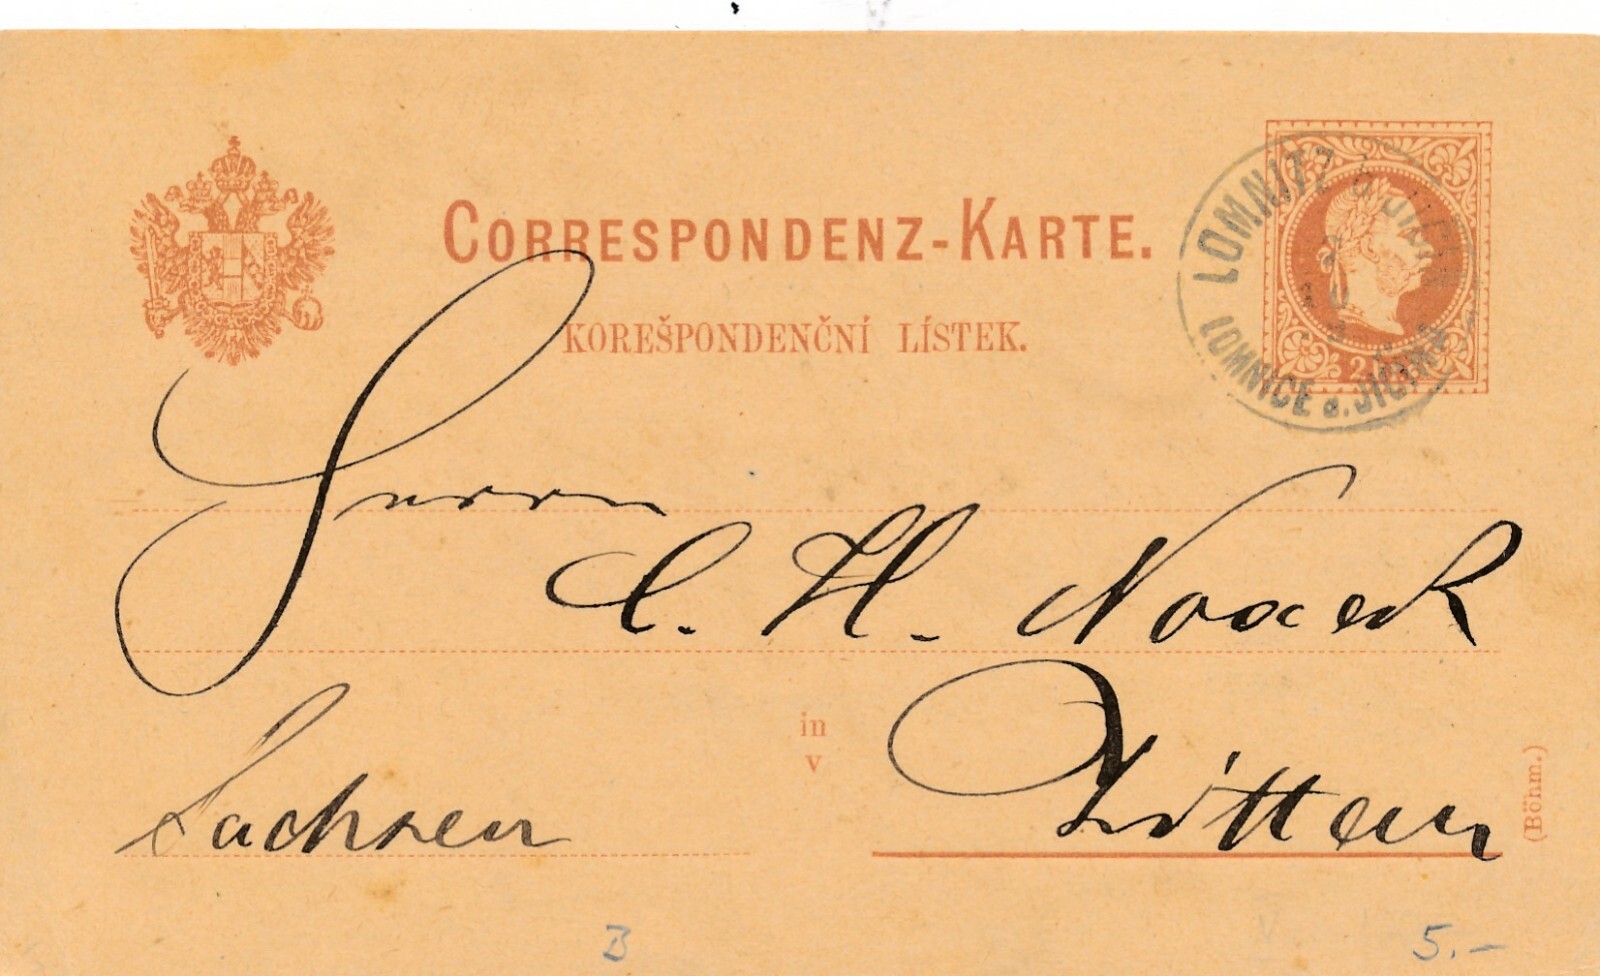 CORRESPONDENZ-KARTE.
KOREŠPONDENČNÍ LÍSTEK.
LOMNITZ
LOMNICE a. JIČINA
2
Herrn
C. H. Noack
in
v
Zittau
Sachsen
(Böhm.)
B
5.-